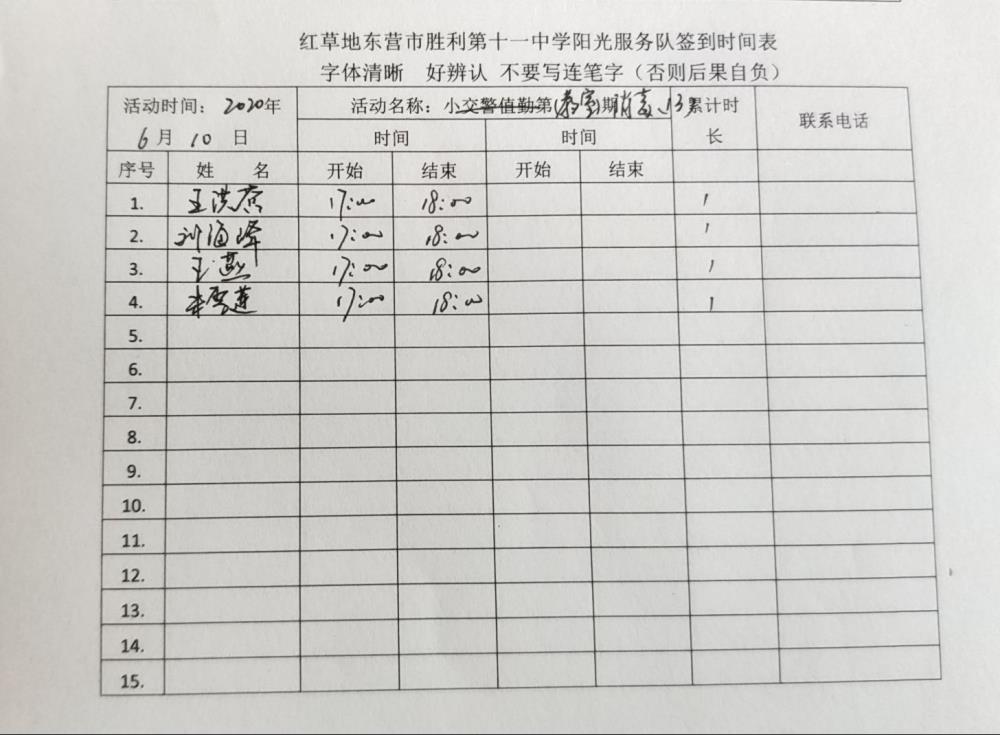 红草地东营市胜利第十一中学阳光服务队签到时间表
字体清晰 好辨认 不要写连笔字（否则后果自负）
活动时间：2020年 活动名称：小交警值勤第（教室）期消毒、13 累计时长 联系电话
6月10日 时间 时间
序号 姓名 开始 结束 开始 结束
1. 王洪 17:00 18:00 1
2. 刘海峰 17:00 18:00 1
3. 王燕 17:00 18:00 1
4. 李雪莲 17:00 18:00 1
5.
6.
7.
8.
9.
10.
11.
12.
13.
14.
15.